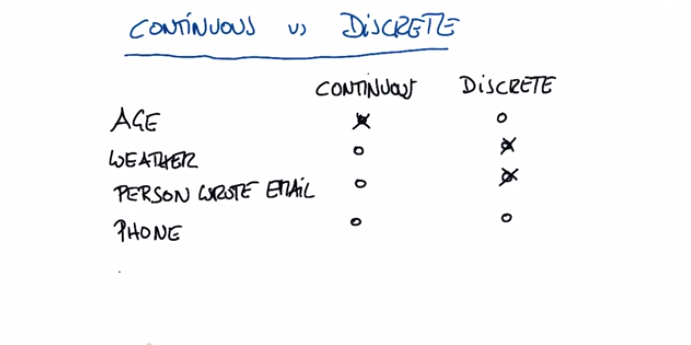 CONTINUOUS vs DISCRETE
CONTINUOUS DISCRETE
AGE
WEATHER
PERSON WROTE EMAIL
PHONE